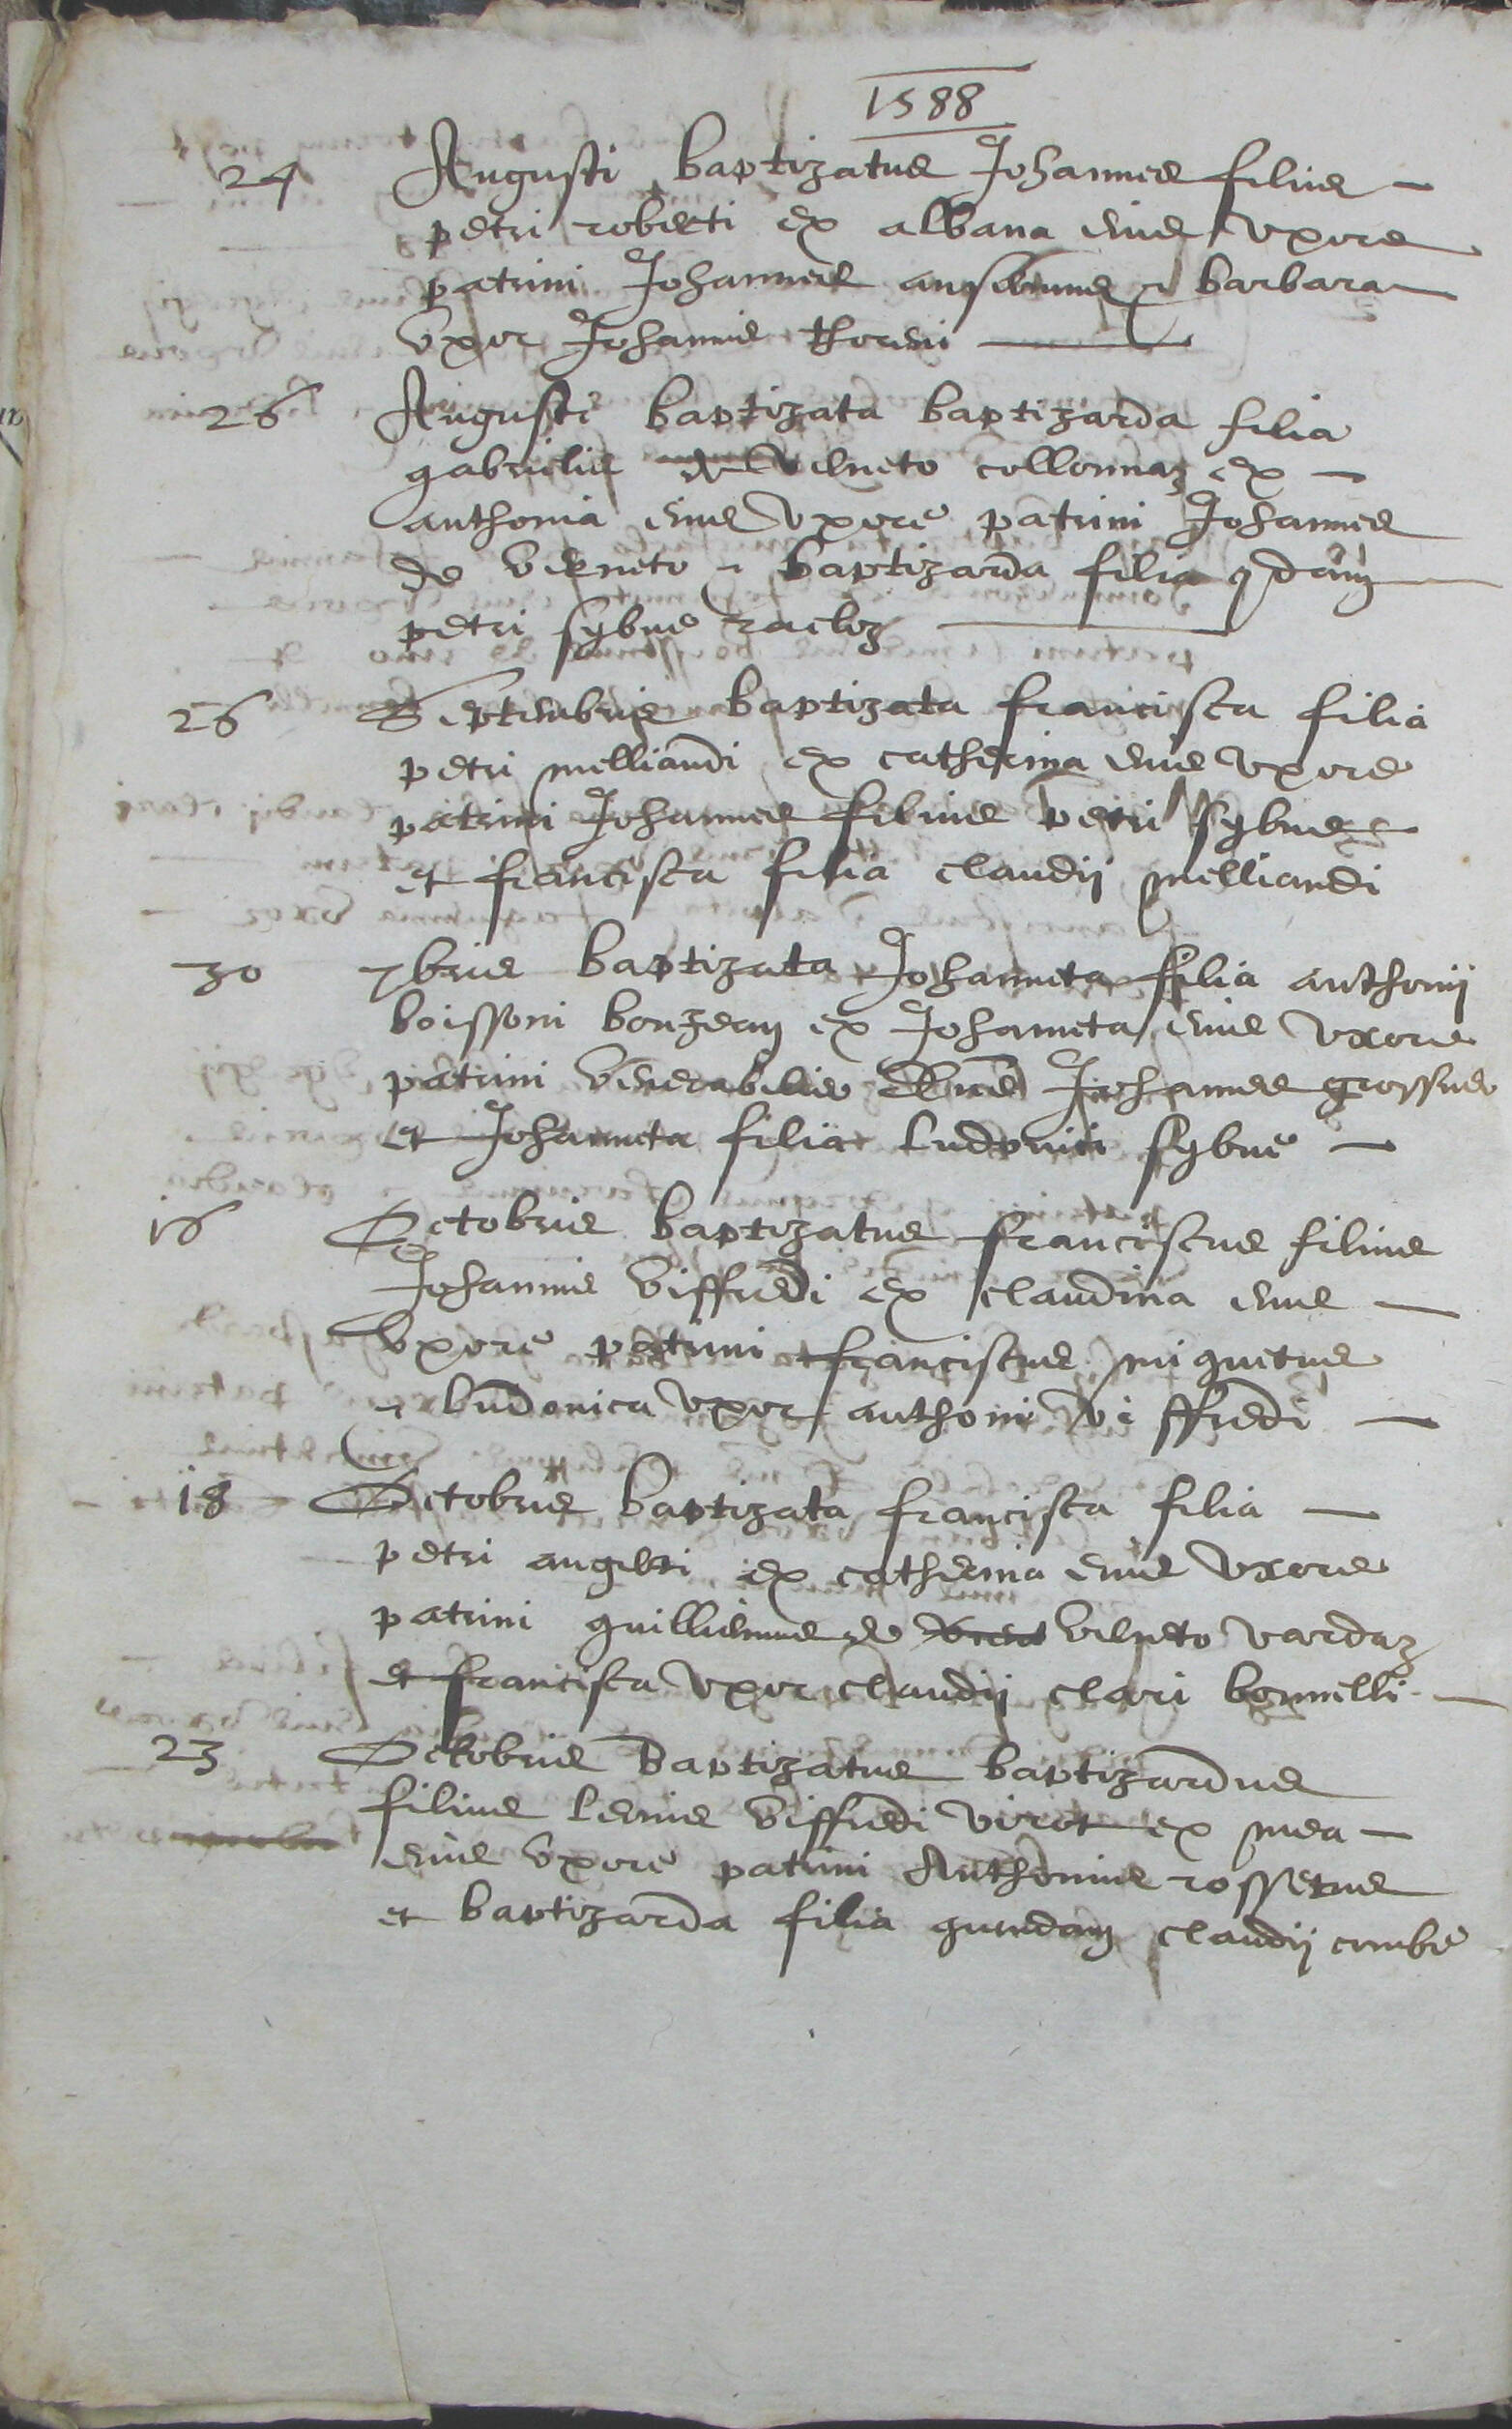 1588
24 Augusti baptizatus Johannes filius
petri roberti ex albana eius uxore
patrini Johannes anselmus & barbara
uxor Johannis thoreni
26 Augusti baptizata baptizarda filia
gabrielis de Verneto collonnaz ex
anthonia eius uxore patrini Johannes
de Verneto & baptizarda filia qdam
petri sybue racloz
26 Septembris baptizata francisca filia
petri melliandi ex catherina eius uxore
patrini Johannes filius petri sybue
et francisca filia claudii melliandi
30 7bris baptizata Johanneta filia anthonii
boissoni bonzean ex Johanneta eius uxore
patrini venerabilis dnus Johannes grossus
et Johanneta filia ludovici sybue
16 Octobris baptizatus franciscus filius
Johannis Viffredi ex claudina eius
uxore patrini franciscus miguetus
& ludovica uxor anthoni Viffredi
18 Octobris baptizata francisca filia
petri angelri ex catherina eius uxore
patrini guilliermus de Verneto vardaz
et francisca uxor claudii clari bonnelli
23 Octobris baptizatus baptizardus
filius leonis Viffredi virot ex mea
eius uxore patrini Anthonius rossetus
et baptizarda filia quondam claudii combe